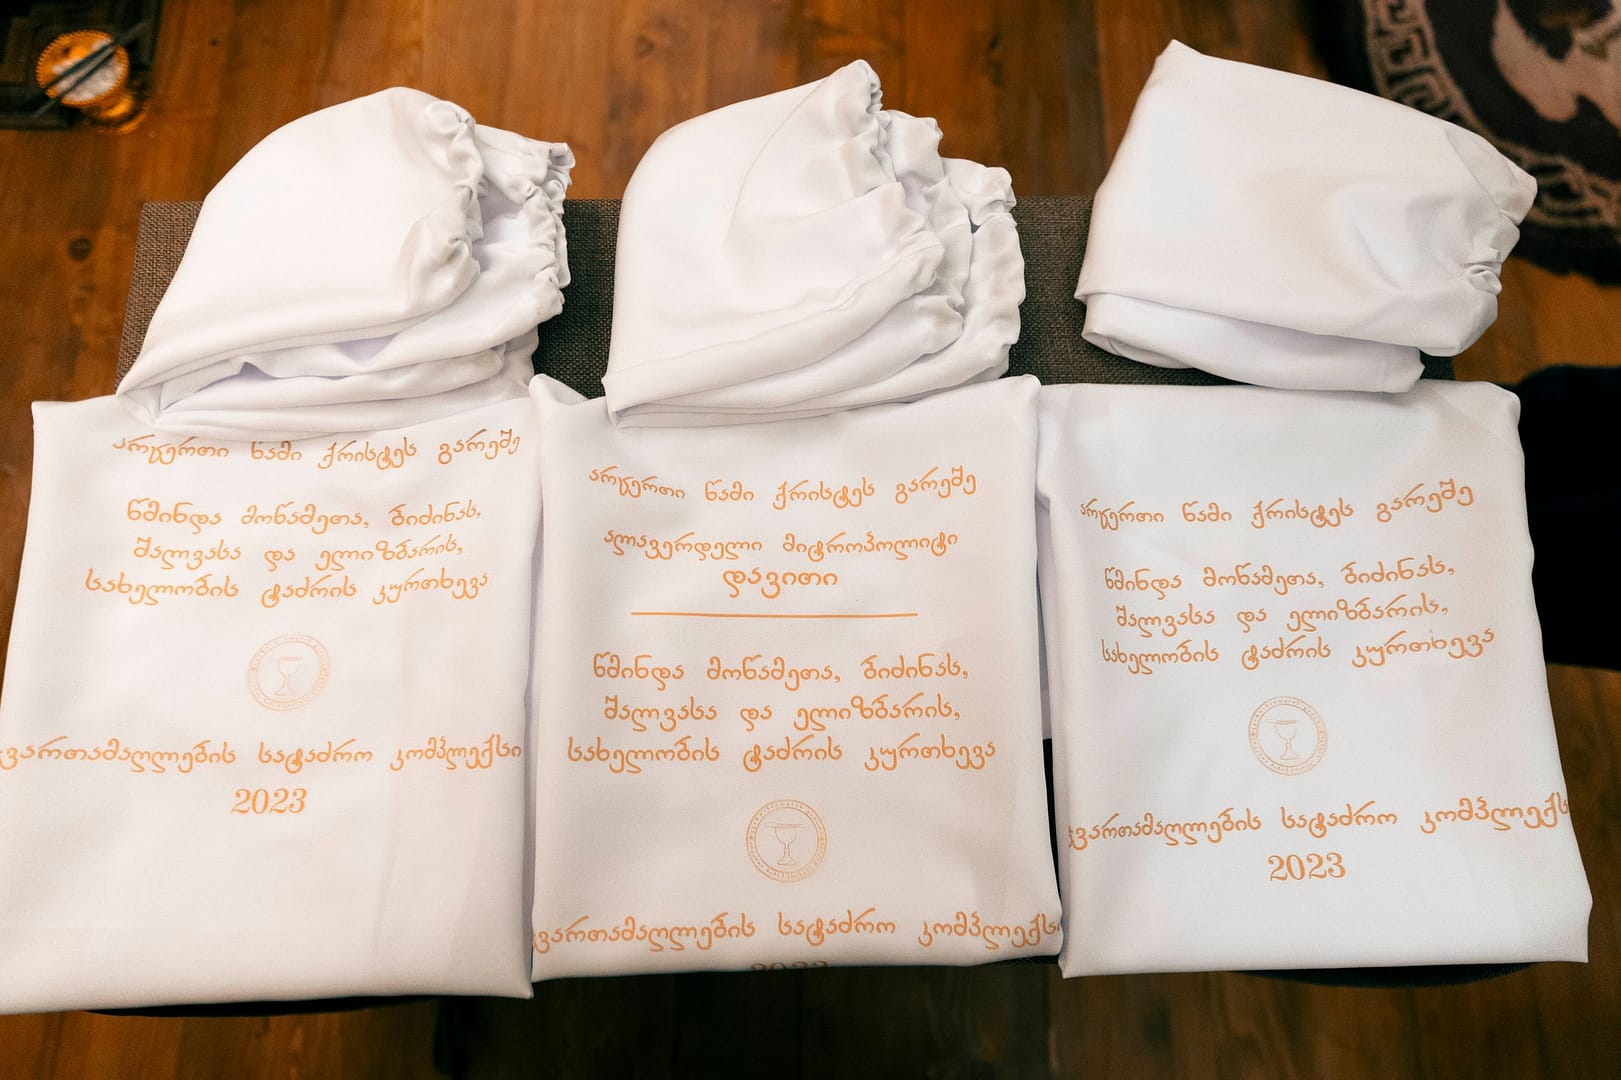 არცერთი წამი ქრისტეს გარეშე
წმინდა მოწამეთა, ბიძინას,
შალვასა და ელიზბარის,
სახელობის ტაძრის კურთხევა
ჯვართამაღლების სატაძრო კომპლექსი
2023
არცერთი წამი ქრისტეს გარეშე
ალავერდელი მიტროპოლიტი
დავითი
წმინდა მოწამეთა, ბიძინას,
შალვასა და ელიზბარის,
სახელობის ტაძრის კურთხევა
ჯვართამაღლების სატაძრო კომპლექსი
2023
არცერთი წამი ქრისტეს გარეშე
წმინდა მოწამეთა, ბიძინას,
შალვასა და ელიზბარის,
სახელობის ტაძრის კურთხევა
ჯვართამაღლების სატაძრო კომპლექსი
2023